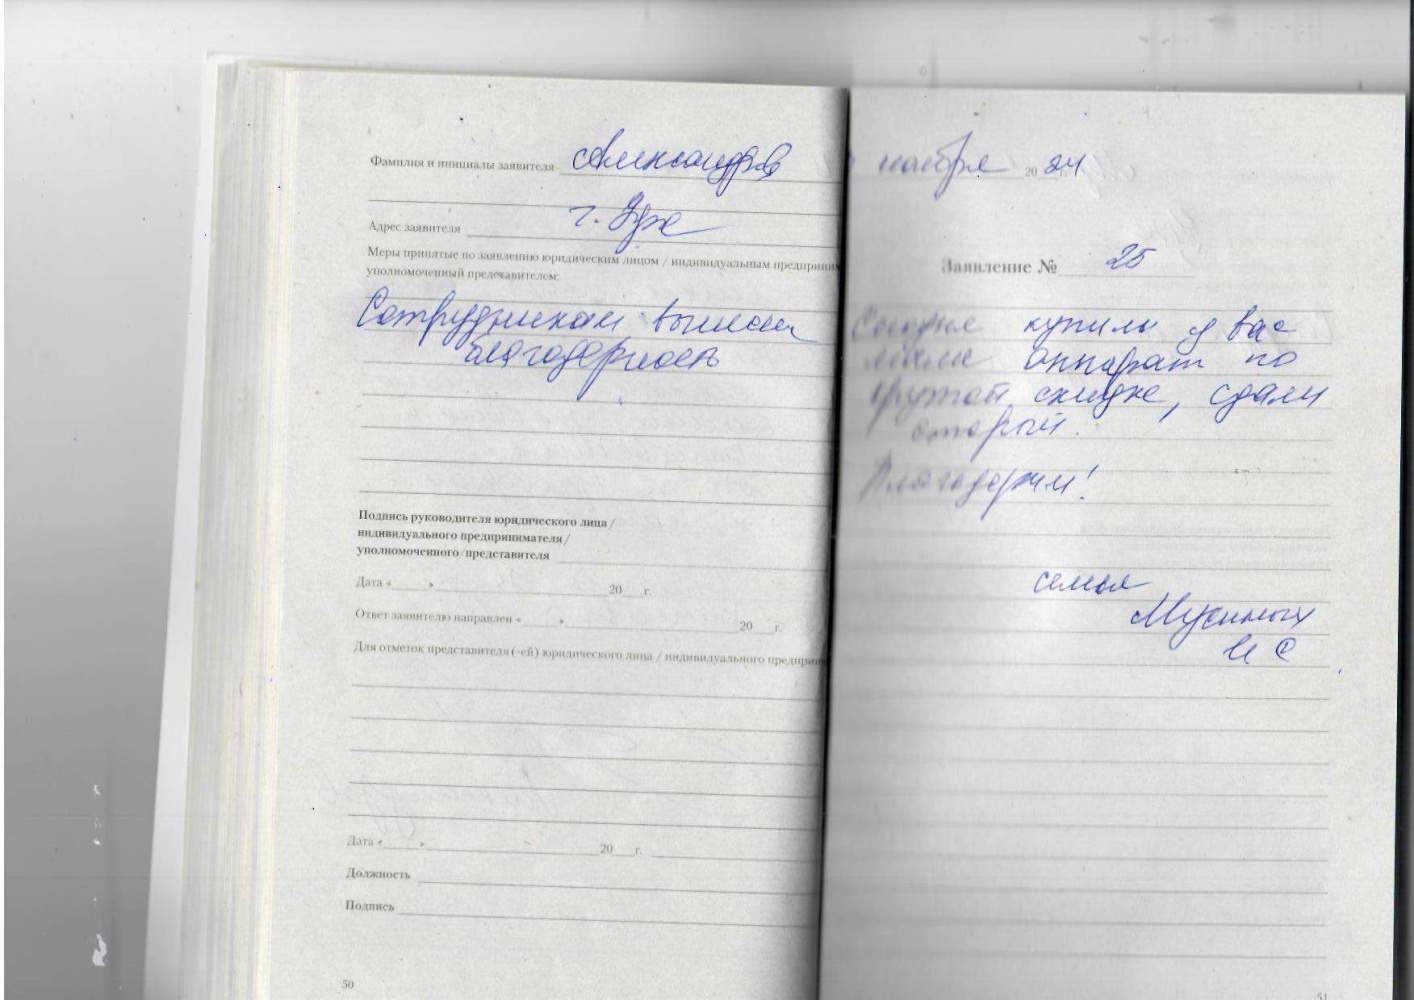 Фамилия и инициалы заявителя Александров
Адрес заявителя г. Уфа
Меры принятые по заявлению юридическим лицом / индивидуальным предприним
уполномоченный председателем:
Сотрудникам
благодарность
Подпись руководителя юридического лица /
индивидуального предпринимателя /
уполномоченного представителя
Дата «____» 20___г.
Ответ заявителю направлен «____» 20___г.
Для отметок представителя (-ей) юридического лица / индивидуального предприни
Дата «____» 20___г.
Должность
Подпись
50
ноября 20 24
Заявление № 25
Сегодня купили у вас
аппарат по
крутой скидке, сдали
старый.
Благодарим!
семья
Мусиных
И С
51